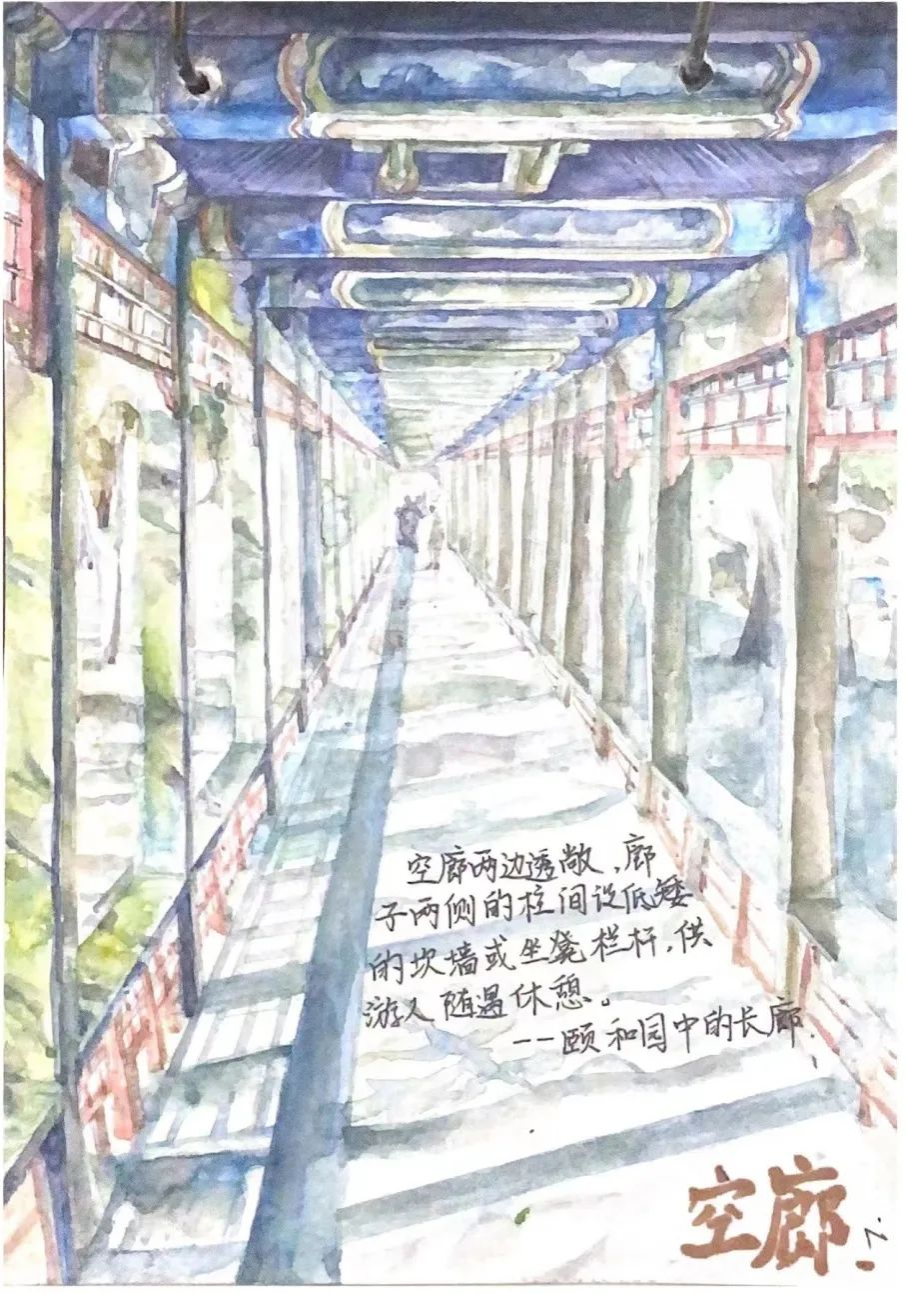 空廊两边透敞，廊
子两侧的柱间设低矮
的坎墙或坐凳栏杆，供
游人随遇休憩。
——颐和园中的长廊.
空廊.
7.